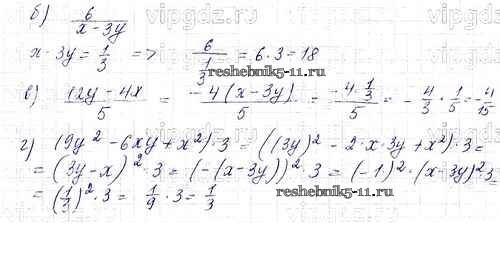 vipgdz.ru vipgdz.ru vipgdz.ru
б) 6/(x-3y)
x-3y = 1/3 => 6/(1/3) = 6·3 = 18
reshebnik5-11.ru
в) (12y-4x)/5 = (-4(x-3y))/5 = (-4·1/3)/5 = -4/3·1/5 = -4/15
г) (9y²-6xy+x²)·3 = ((3y)²-2·x·3y+x²)·3 =
= (3y-x)²·3 = (-(x-3y))²·3 = (-1)²·(x-3y)²·3 =
= (1/3)²·3 = 1/9·3 = 1/3
reshebnik5-11.ru